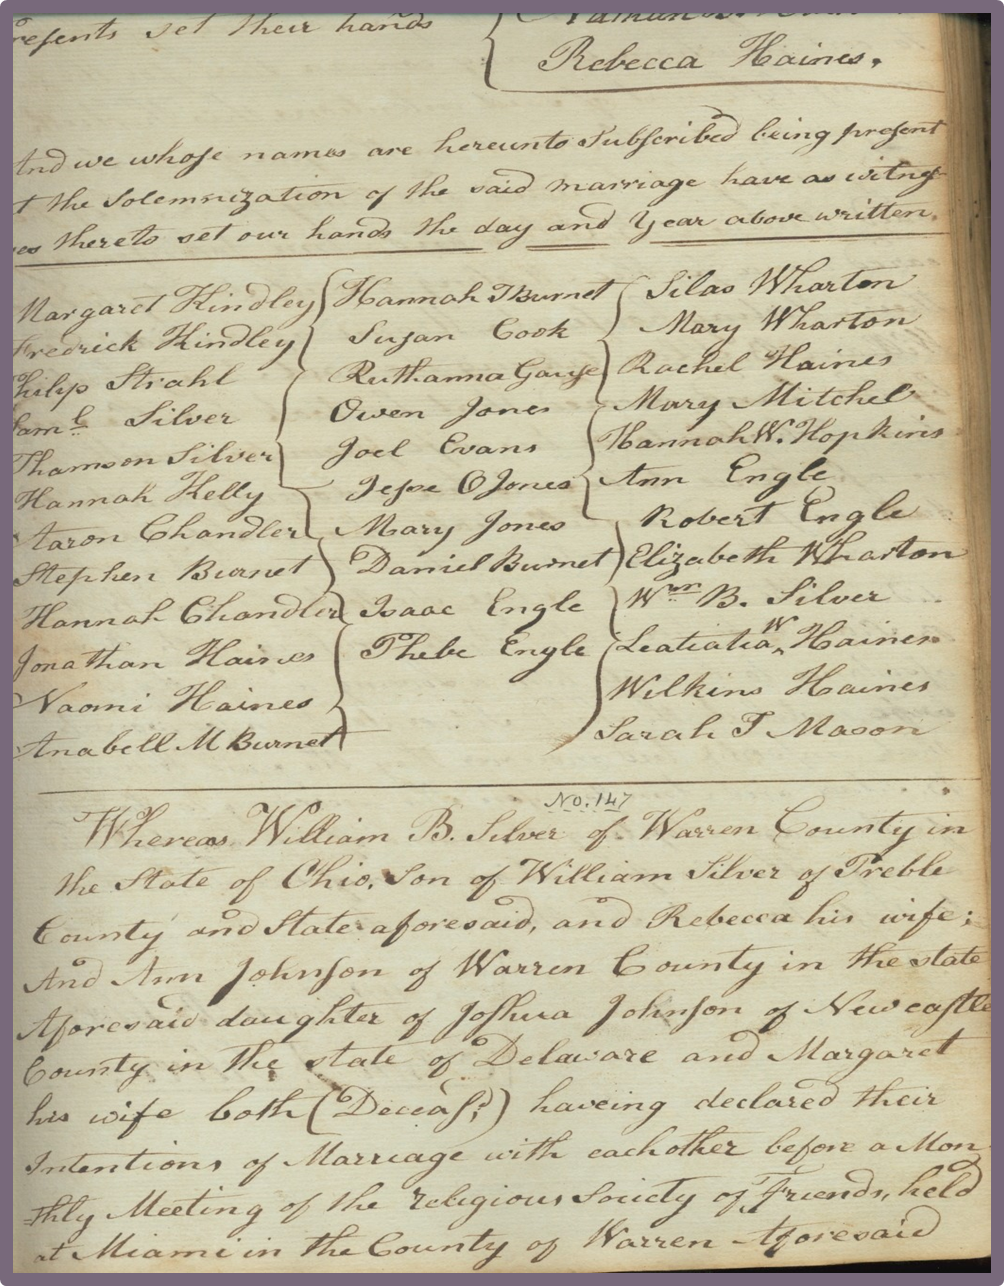 resents set their hands
Rebecca Haines.
And we whose names are hereunto Subscribed being present
at the Solemnization of the said marriage have as witnes
ses thereto set our hands the day and Year above written.
Margaret Kindley
Fredrick Kindley
Philip Strahl
Saml Silver
Thamson Silver
Hannah Kelly
Aaron Chandler
Stephen Burnet
Hannah Chandler
Jonathan Haines
Naomi Haines
Anabell M Burnet
Hannah T Burnet
Susan Cook
Ruthanna Gause
Owen Jones
Joel Evans
Jesse O Jones
Mary Jones
Daniel Burnet
Isaac Engle
Phebe Engle
Silas Wharton
Mary Wharton
Rachel Haines
Mary Mitchel
Hannah W. Hopkins
Ann Engle
Robert Engle
Elizabeth Wharton
Wm B. Silver
Leatitia W Haines
Wilkins Haines
Sarah T Mason
No. 147
Whereas William B. Silver of Warren County in
the State of Ohio, Son of William Silver of Preble
County and State aforesaid, and Rebecca his wife;
And Ann Johnson of Warren County in the state
Aforesaid daughter of Joshua Johnson of Newcastle
County in the state of Delaware and Margaret
his wife both (Deceasd;) haveing declared their
Intentions of Marriage with eachother before a Mon
=thly Meeting of the religious Society of Friends, held
at Miami in the County of Warren Aforesaid